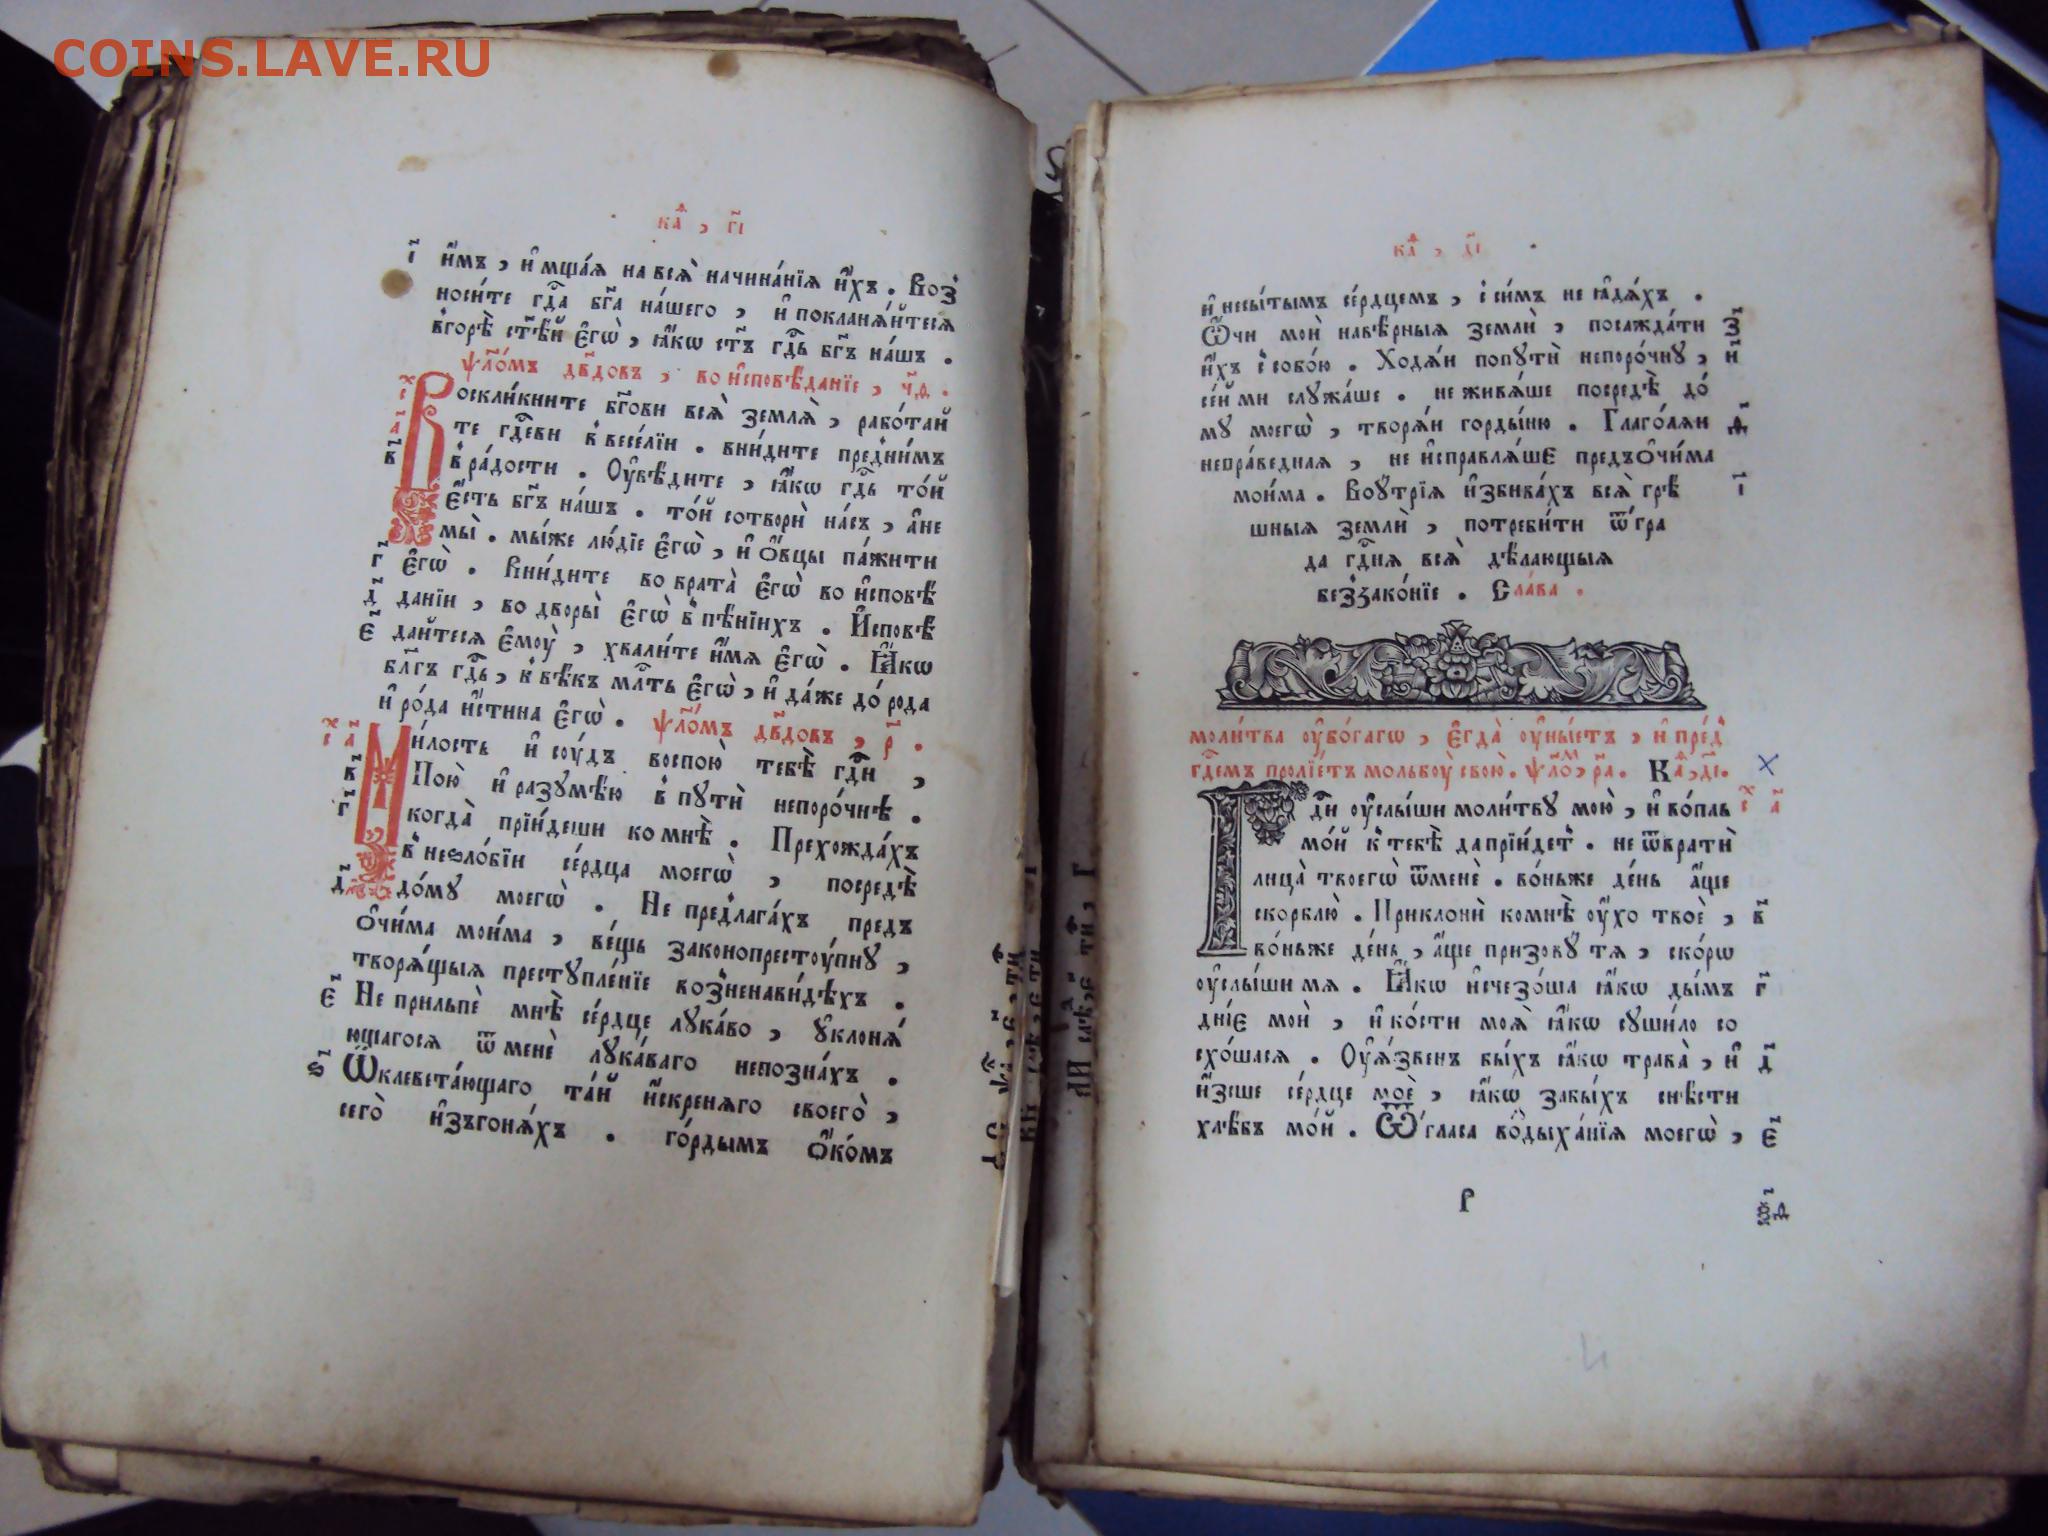 COINS.LAVE.RU
каѳ, г҃і
і҃ и҆́мъ, и҆ мща́ѧ на всѧ̀ начина́нїѧ и҆́хъ. Воз
носи́те гд҇а бг҃а на́шего, и҆ покланѧ́йтесѧ
в҆горѣ̀ ст҃ѣ́й є҆гѡ̀, ꙗ҆́кѡ ст҃ъ гд҇ь бг҃ъ на́шъ.
ѱ҃ло́мъ дв҃довъ, во и҆сповѣ́данїе, ч҃ѳ.
Воскли́кните бг҃ови всѧ̀ землѧ̀, рабо́тай
те гд҇еви в҆ весе́лїи. вни́дите пред̾ни́мъ
в҆ ра́дости. Оу҆вѣ́дите, ꙗ҆́кѡ гд҇ь то́й
є҆́сть бг҃ъ на́шъ. то́й сотворѝ на́съ, а҆не
мы̀. мы́же лю́дїе є҆гѡ̀, и҆ о҆́вцы па́жити
г҃ є҆гѡ̀. Вни́дите во врата̀ є҆гѡ̀ во и҆сповѣ́
д҃ данїи, во дворы̀ є҆гѡ̀ в҆ пѣ́нїихъ. И҆сповѣ́
є҃ дайтесѧ є҆моу̀, хвали́те и҆́мѧ є҆гѡ̀. Ꙗ҆́кѡ
бл҃гъ гд҇ь, в҆ вѣ́къ мл҇ть є҆гѡ̀, и҆ да́же до́ рода
и҆ ро́да и҆́стина є҆гѡ̀. ѱ҃ло́мъ дв҃довъ, р҃.
Ми́лость и҆ соу́дъ воспою̀ тебѣ̀ гд҇и,
Пою̀ и҆ разꙋмѣ́ю в҆ пꙋтѝ непоро́чнѣ.
когда̀ прїи́деши ко мнѣ̀. Прехожда́хъ
в҆ неѕло́бїи се́рдца моегѡ̀, посредѣ̀
д҃ до́мꙋ моегѡ̀. Не пред̾лага́хъ предъ
о҆чи́ма мои́ма, ве́щь законопрестоу́пнꙋ,
творѧ́щыѧ престꙋпле́нїе воз̾ненави́дѣхъ.
є҃ Не прильпѐ мнѣ̀ се́рдце лꙋка́во, ᲂу҆клонѧ́
ющагосѧ ѿ менѐ лꙋка́ваго непозна́хъ.
ѕ҃ Ѡ҆клевета́ющаго та́й и҆́скренѧго своего̀,
сего̀ и҆зъгонѧ́хъ. го́рдымъ о҆́ко́мъ
каѳ, д҃і
и҆ несы́тымъ се́рдцемъ, с҆ си́мъ не ꙗ҆дѧ́хъ.
Ѻ҆́чи моѝ навѣ́рныѧ землѝ, посажда́ти з҃
и҆́хъ с҆ собо́ю. Ходѧ́и попꙋтѝ непоро́чнꙋ, и҃
се́й ми слꙋжа́ше. не живѧ́ше посредѣ̀ до́
мꙋ моегѡ̀, творѧ́и горды́ню. Глаго́лѧи ѳ҃
непра́веднаѧ, не и҆справлѧ́ше предъо҆чи́ма
мои́ма. Воу҆́трїѧ и҆збива́хъ всѧ̀ грѣ́ і҃
шныѧ землѝ, потреби́ти ѿ гра
да гд҇нѧ всѧ̀ дѣ́лающыѧ
без̾зако́нїе. Сла́ва.
моли́тва оу҆бо́гагѡ, є҆гда̀ оу҆ны́етъ, и҆ пред̾
гд҇емъ пролїе́тъ мольбоу̀ свою̀. ѱ҃ло́мъ, р҃а. Каѳ, д҃і. х
Гд҇и оу҆слы́ши моли́твꙋ мою̀, и҆ во́пль а҃
мо́й к҆ тебѣ̀ да прїи́дет̾. не ѿвратѝ
лица̀ твоегѡ̀ ѿменѐ. во́ньже де́нь а҆́ще
скорблю̀. Приклонѝ комнѣ̀ оу҆́хо твоѐ, в҃
во́ньже де́нь, а҆́ще призовꙋ́ тѧ, ско́рѡ
оу҆слы́ши мѧ. Ꙗ҆́кѡ и҆счезо́ша ꙗ҆́кѡ ды́мъ г҃
днїѐ моѝ, и҆ ко́сти моѧ̀ ꙗ҆́кѡ сꙋши́ло со
схо́шасѧ. Оу҆ѧ́звенъ бы́хъ ꙗ҆́кѡ трава̀, и҆ д҃
и҆́зсше се́рдце моѐ, ꙗ҆́кѡ забы́хъ снѣ́сти
хлѣ́бъ мо́й. Ѿ гласа во҆з̾дыха́нїѧ моегѡ̀, є҃
р